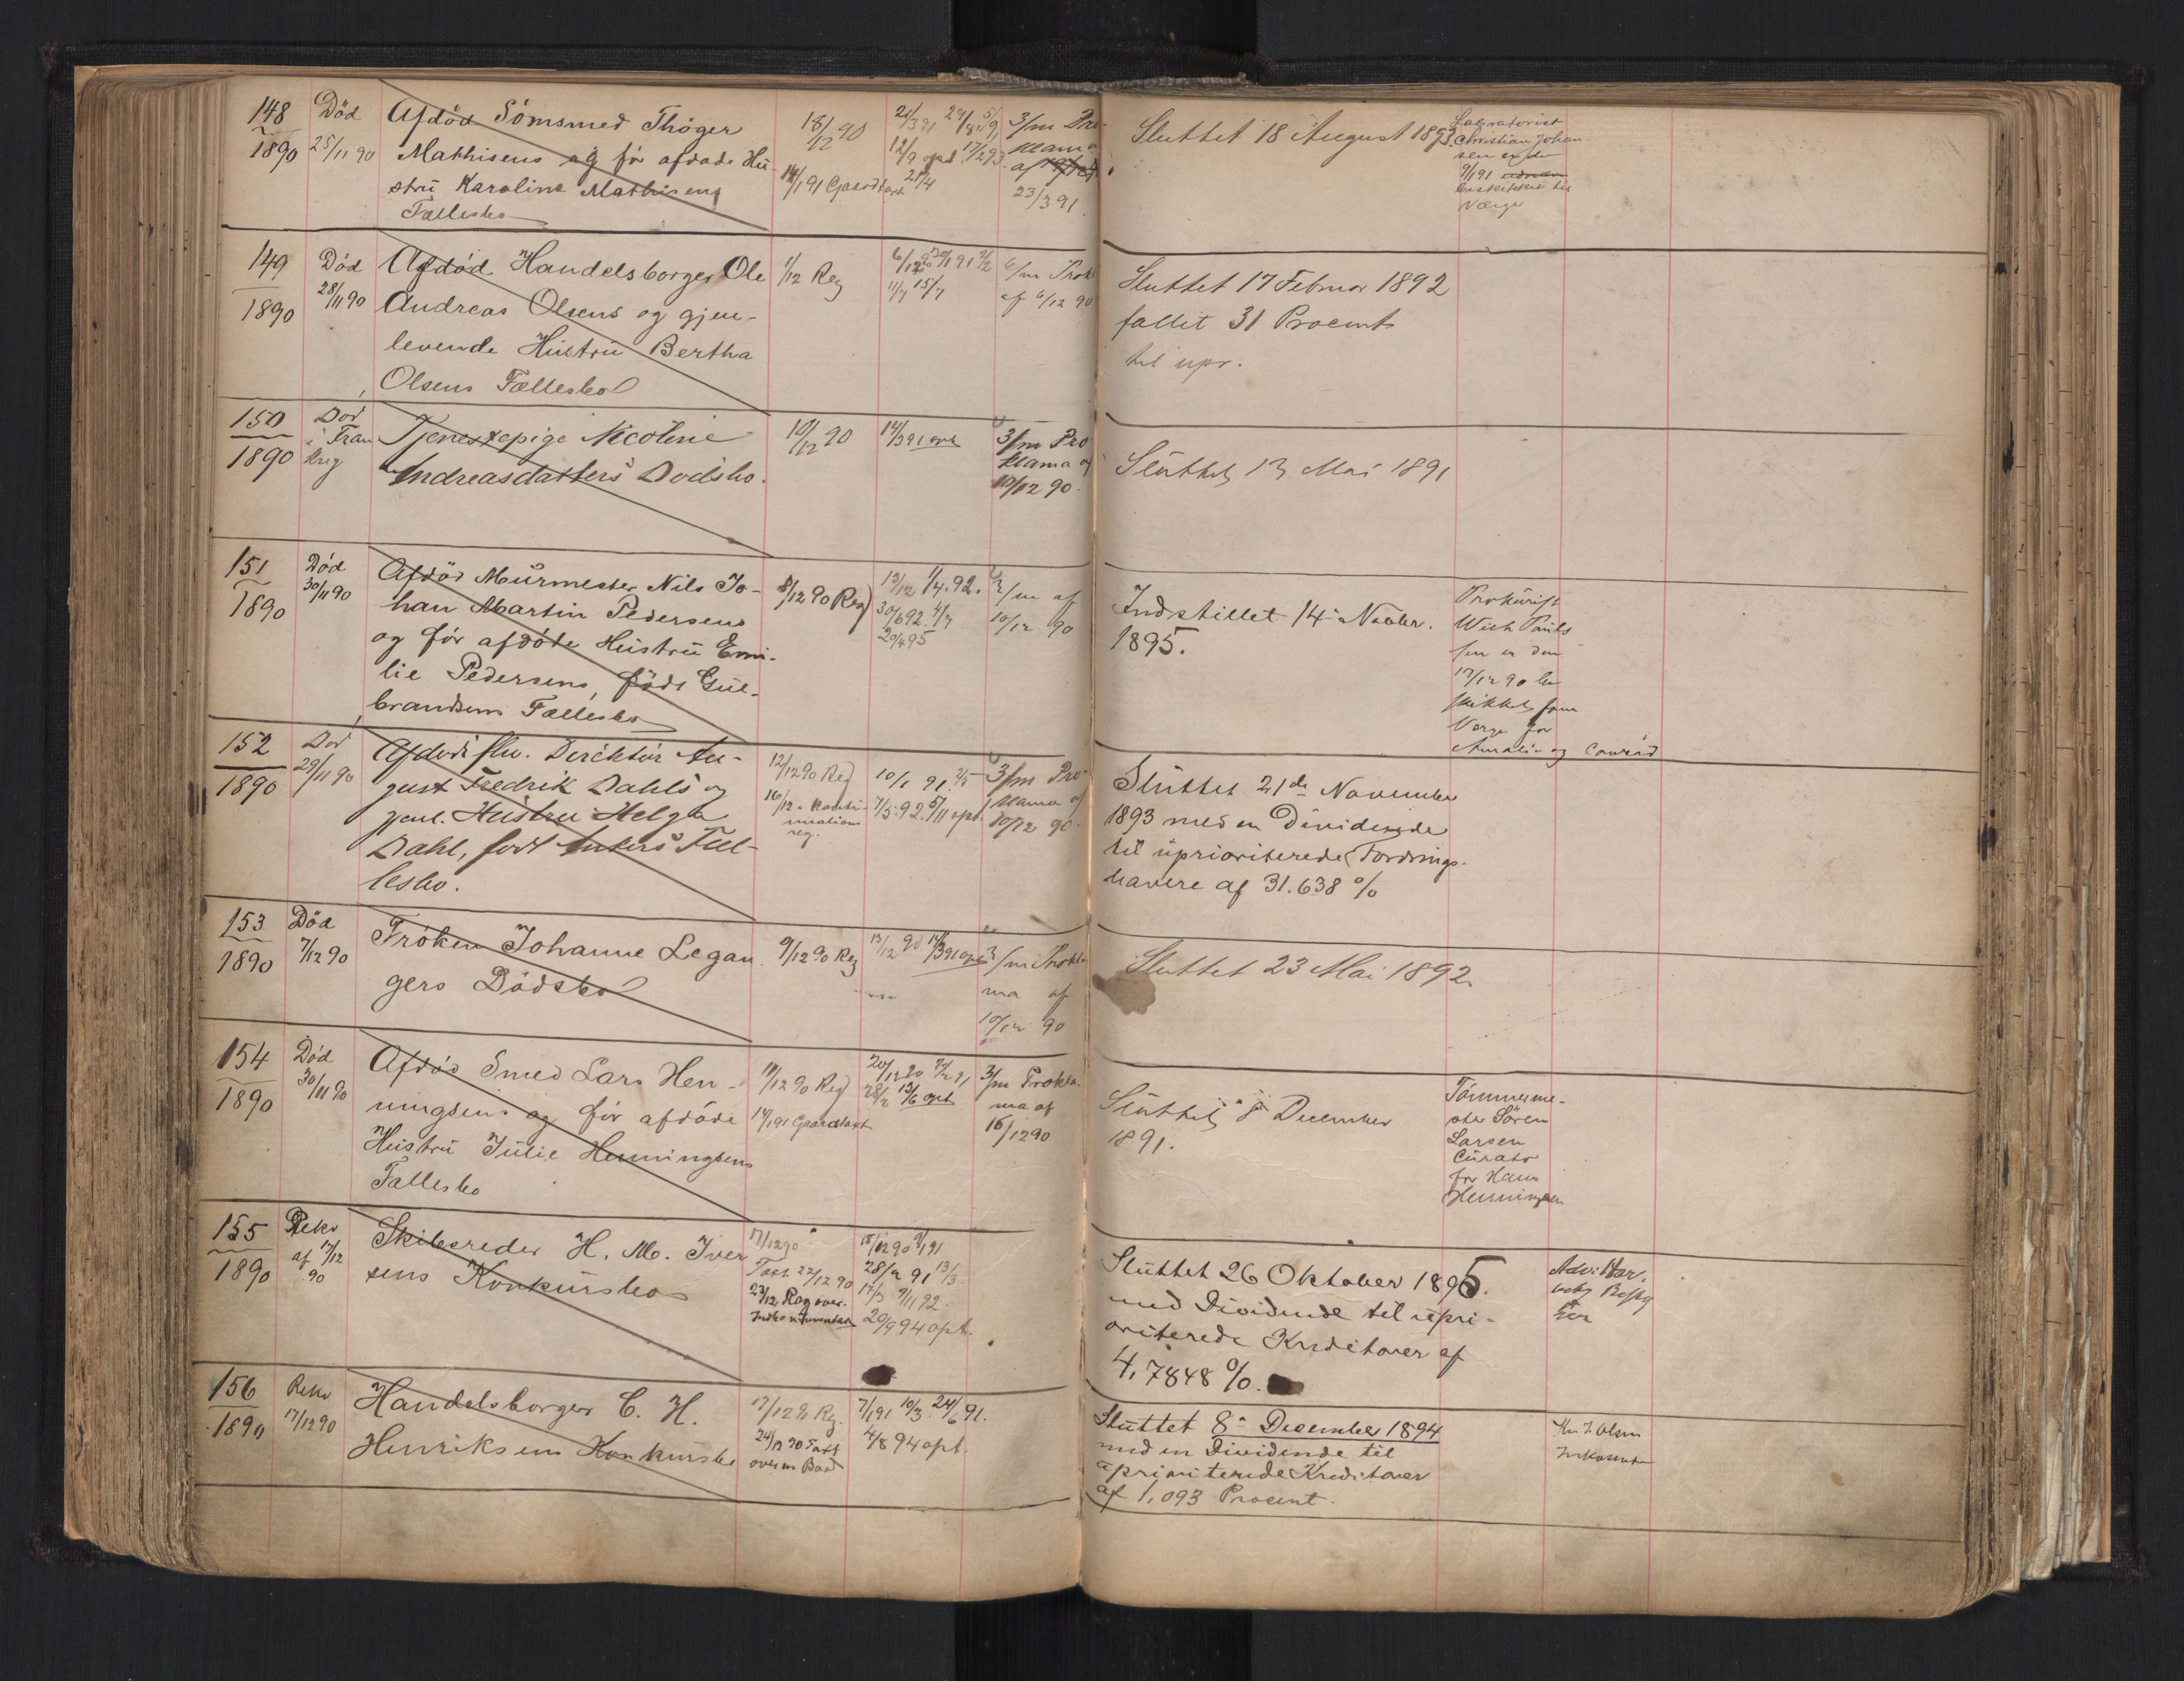 148
1890
Död
25/11 90
Afdöd Sömsmed Thöger
Mathisens og för afdøde Hu-
stru Karoline Mathisens
Fællesbo
18/12 90
14/1 91 Gjældtaxt
12/9 opt 17/2 93.
21/4
3/m Pro-
klama
af
23/3 91.
Sluttet 18 August 1893.
Christian Johan-
sen er den
9/1 91
beskikket til
Værge
149
1890
Död
28/11 90
Afdöd Handelsborger Ole
Andreas Olsens og gjen-
levende Hustru Bertha
Olsens Fællesbo
1/12 Reg
11/7 15/7
6/m Prokl
af 6/12 90
Sluttet 17 Februar 1892
fallit 31 Procent
til upr.
150
1890
Död
i Fran
krig
Tjenestepige Nicoline
Andreasdatters Dødsbo.
10/12 90
14/3 91 opt
3/m Pro
klama af
10/12 90.
Sluttet 13 Mai 1891
151
1890
Död
30/11 90
Afdöd Murmester Nils Jo-
han Martin Pedersens
og för afdöde Hustru Emi-
lie Pedersens, födt Gul-
brandsens Fællesbo
8/12 90 Reg
13/12 1/4. 92.
30/6 92. 4/7
20/4 95
3/m af
10/12 90
Indstillet 14de Novbr.
1895.
Prokurist
Wilh Pauls
sen er den
17/12 90 be
skikket som
Verge for
Amalie og Conrad
152
1890
Död
29/11 90
Afdöde fhv. Direktör Au-
gust Fredrik Dahls og
gjenl. Hustru Helga
Dahl, født Ankers Fæl-
lesbo.
12/12 90 Reg
16/12 - konti-
nuations
reg.
10/1 91. 2/5
7/5. 92. 5/11 opt.
3/m Pro-
klama af
10/12 90.
Sluttet 21de November
1893 med en Dividende
til upriorterede Fordrings-
havere af 31.638 %
153
1890
Död
7/12 90
Fröken Johanne Legan
gers Dödsbo
9/12 90 Reg
13/12 90 14/3 91 opt
3/m Prokla
ma af
10/12 90
Sluttet 23 Mai 1892.
154
1890
Död
30/11 90
Afdöd Smed Lars Hen-
ningsens og för afdöde
Hustru Julie Henningsens
Fællesbo
11/12 90 Reg
14/1 91 Gjældtaxt
28/2 13/6 opt
3/m Prokla-
ma af
16/12 90
Sluttet 8de December
1891.
Tömmerme-
ster Sören
Larsen
Curator
for Hans
Henningsen
155
1890
Rekv
af 17/12
90
Skibsreder H. M. Iver
sens Konkursbo
17/12 90
Taxt 22/12 90
23/12 Reg over
Indbo n Inventar
18/12 90 9/1 91
28/2 91 13/3
17/3 9/11 92
20/9 94 opt.
Sluttet 26 Oktober 1895.
med Dividende til upri-
oriterede Kreditorer af
4,7848 %.
156
1890
Rekv
17/12 90
Handelsborger C. H.
Henriksens Konkursbo
17/12 90 Reg.
24/12 90 Taxt
over en Baad
7/1 91 10/3. 24/6 91.
4/8 94 opt.
Sluttet 8de December 1894
med en Dividende til
uprioriterede Kreditorer
af 1,093 Procent.